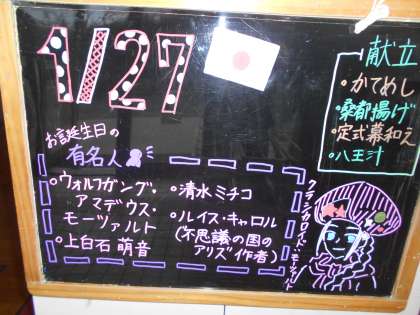 1/27
お誕生日の
有名人
・ウォルフガング・
アマデウス・
モーツァルト
・上白石 萌音
・清水ミチコ
・ルイス・キャロル
(不思議の国の
アリス゛作者)
献立
・かてめし
・桑都揚げ
・定式幕和え
・八王汁
クラシカロイド:モーツァルト